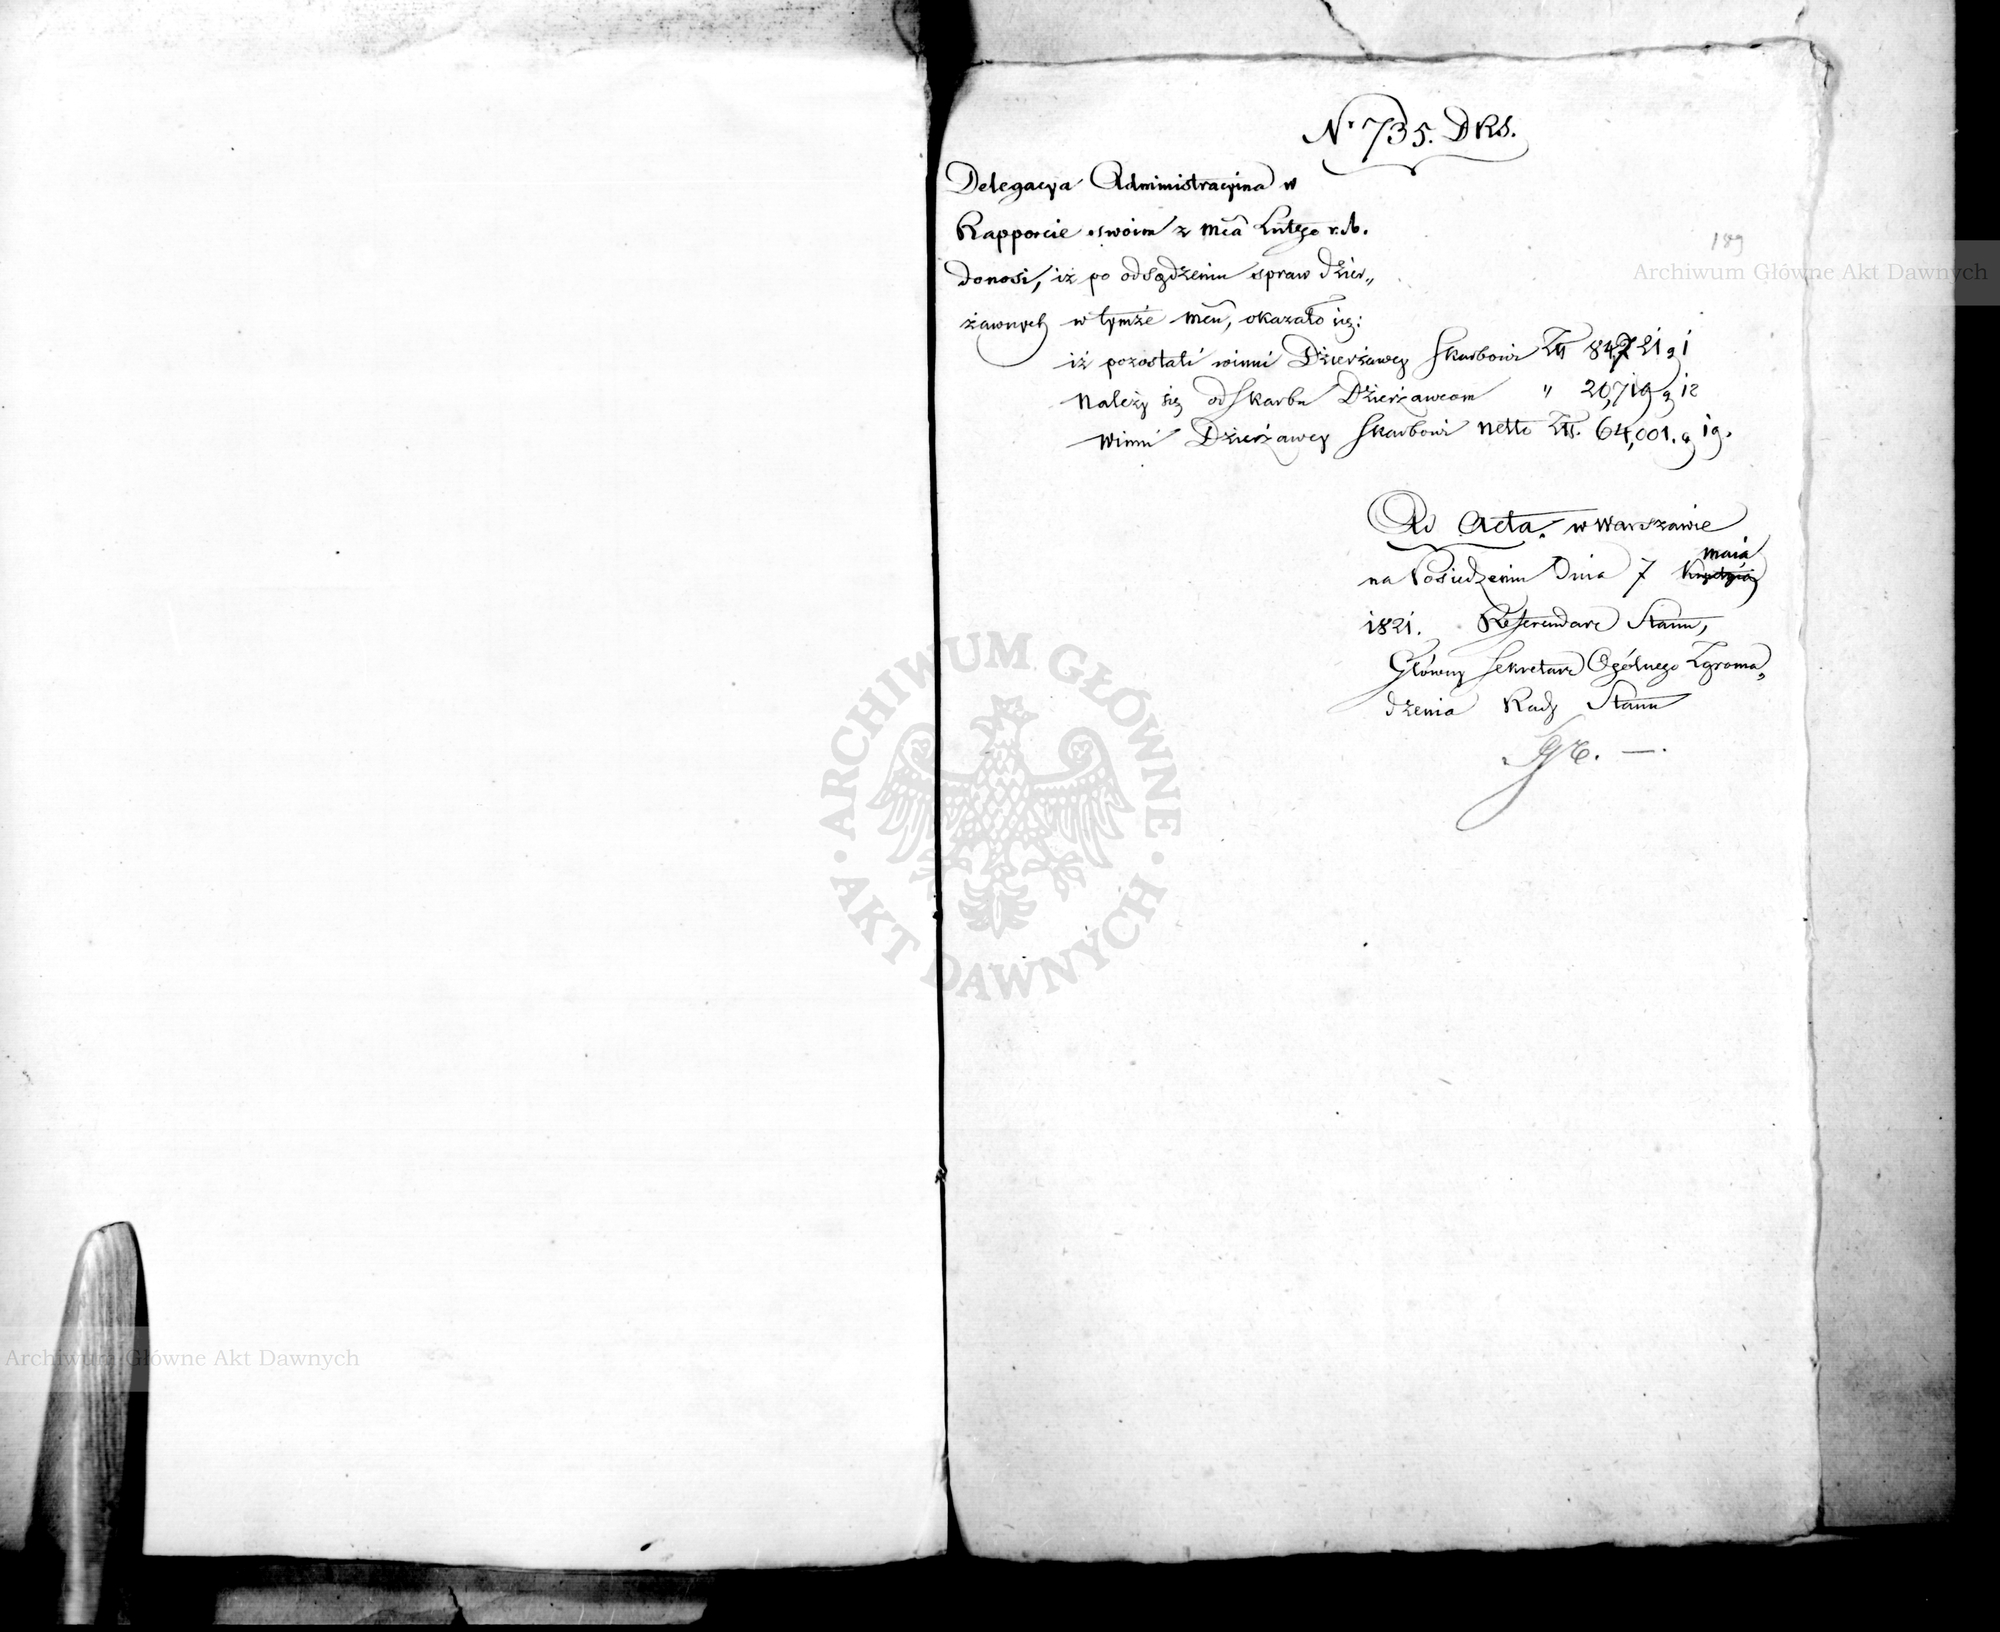 Nr 735. DRS.
Delegacya Administracyina w
Rapporcie swoim z mca Lutego r. b.
donosi, iż po odsądzeniu spraw dzier„
żawnych w tymże mcu, okazało się:
iż pozostali winni Dzierżawcy Skarbowi Złł 84,721 g 1
Należy się od Skarbu Dzierżawcom „ 20,719 g 12
Winni Dzierżawcy Skarbowi netto Złł. 64,001. g 19.
189
Archiwum Główne Akt Dawnych
Ad Acta. w Warszawie
maia
na Posiedzeniu Dnia 7
1821. Referendarz Stanu,
Główny Sekretarz Ogólnego Zgroma„
dzenia Rady Stanu
ARCHIWUM GŁÓWNE
AKT DAWNYCH
Archiwum Główne Akt Dawnych